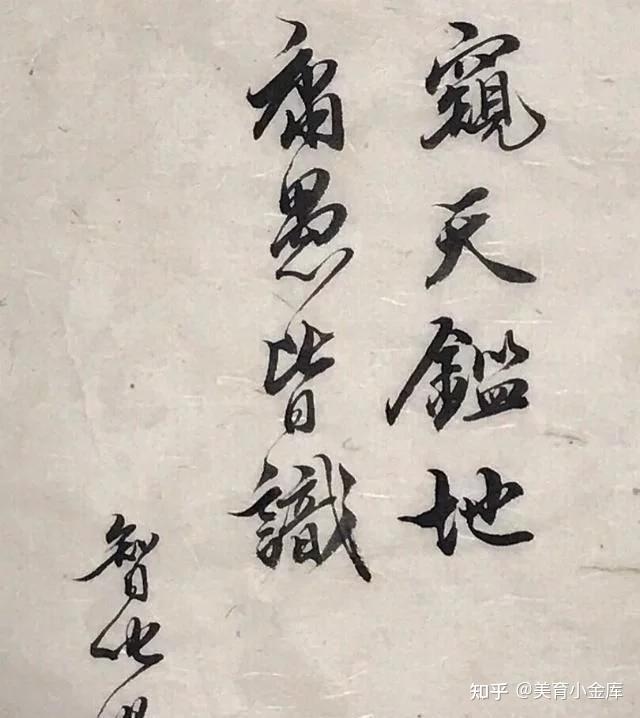 窺天鑑地
庸愚皆識
智
知乎 @美育小金库